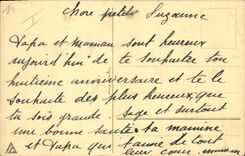 More petite Suzanne
Papa et Maman sont heureux
aujourd'hui de te souhaiter ton
huitième anniversaire et te le
souhaite des plus heureux, que
tu sois grande. Sage et surtout
une bonne santé ta mamine
et Papa qui t'aime de tout
leur cœur